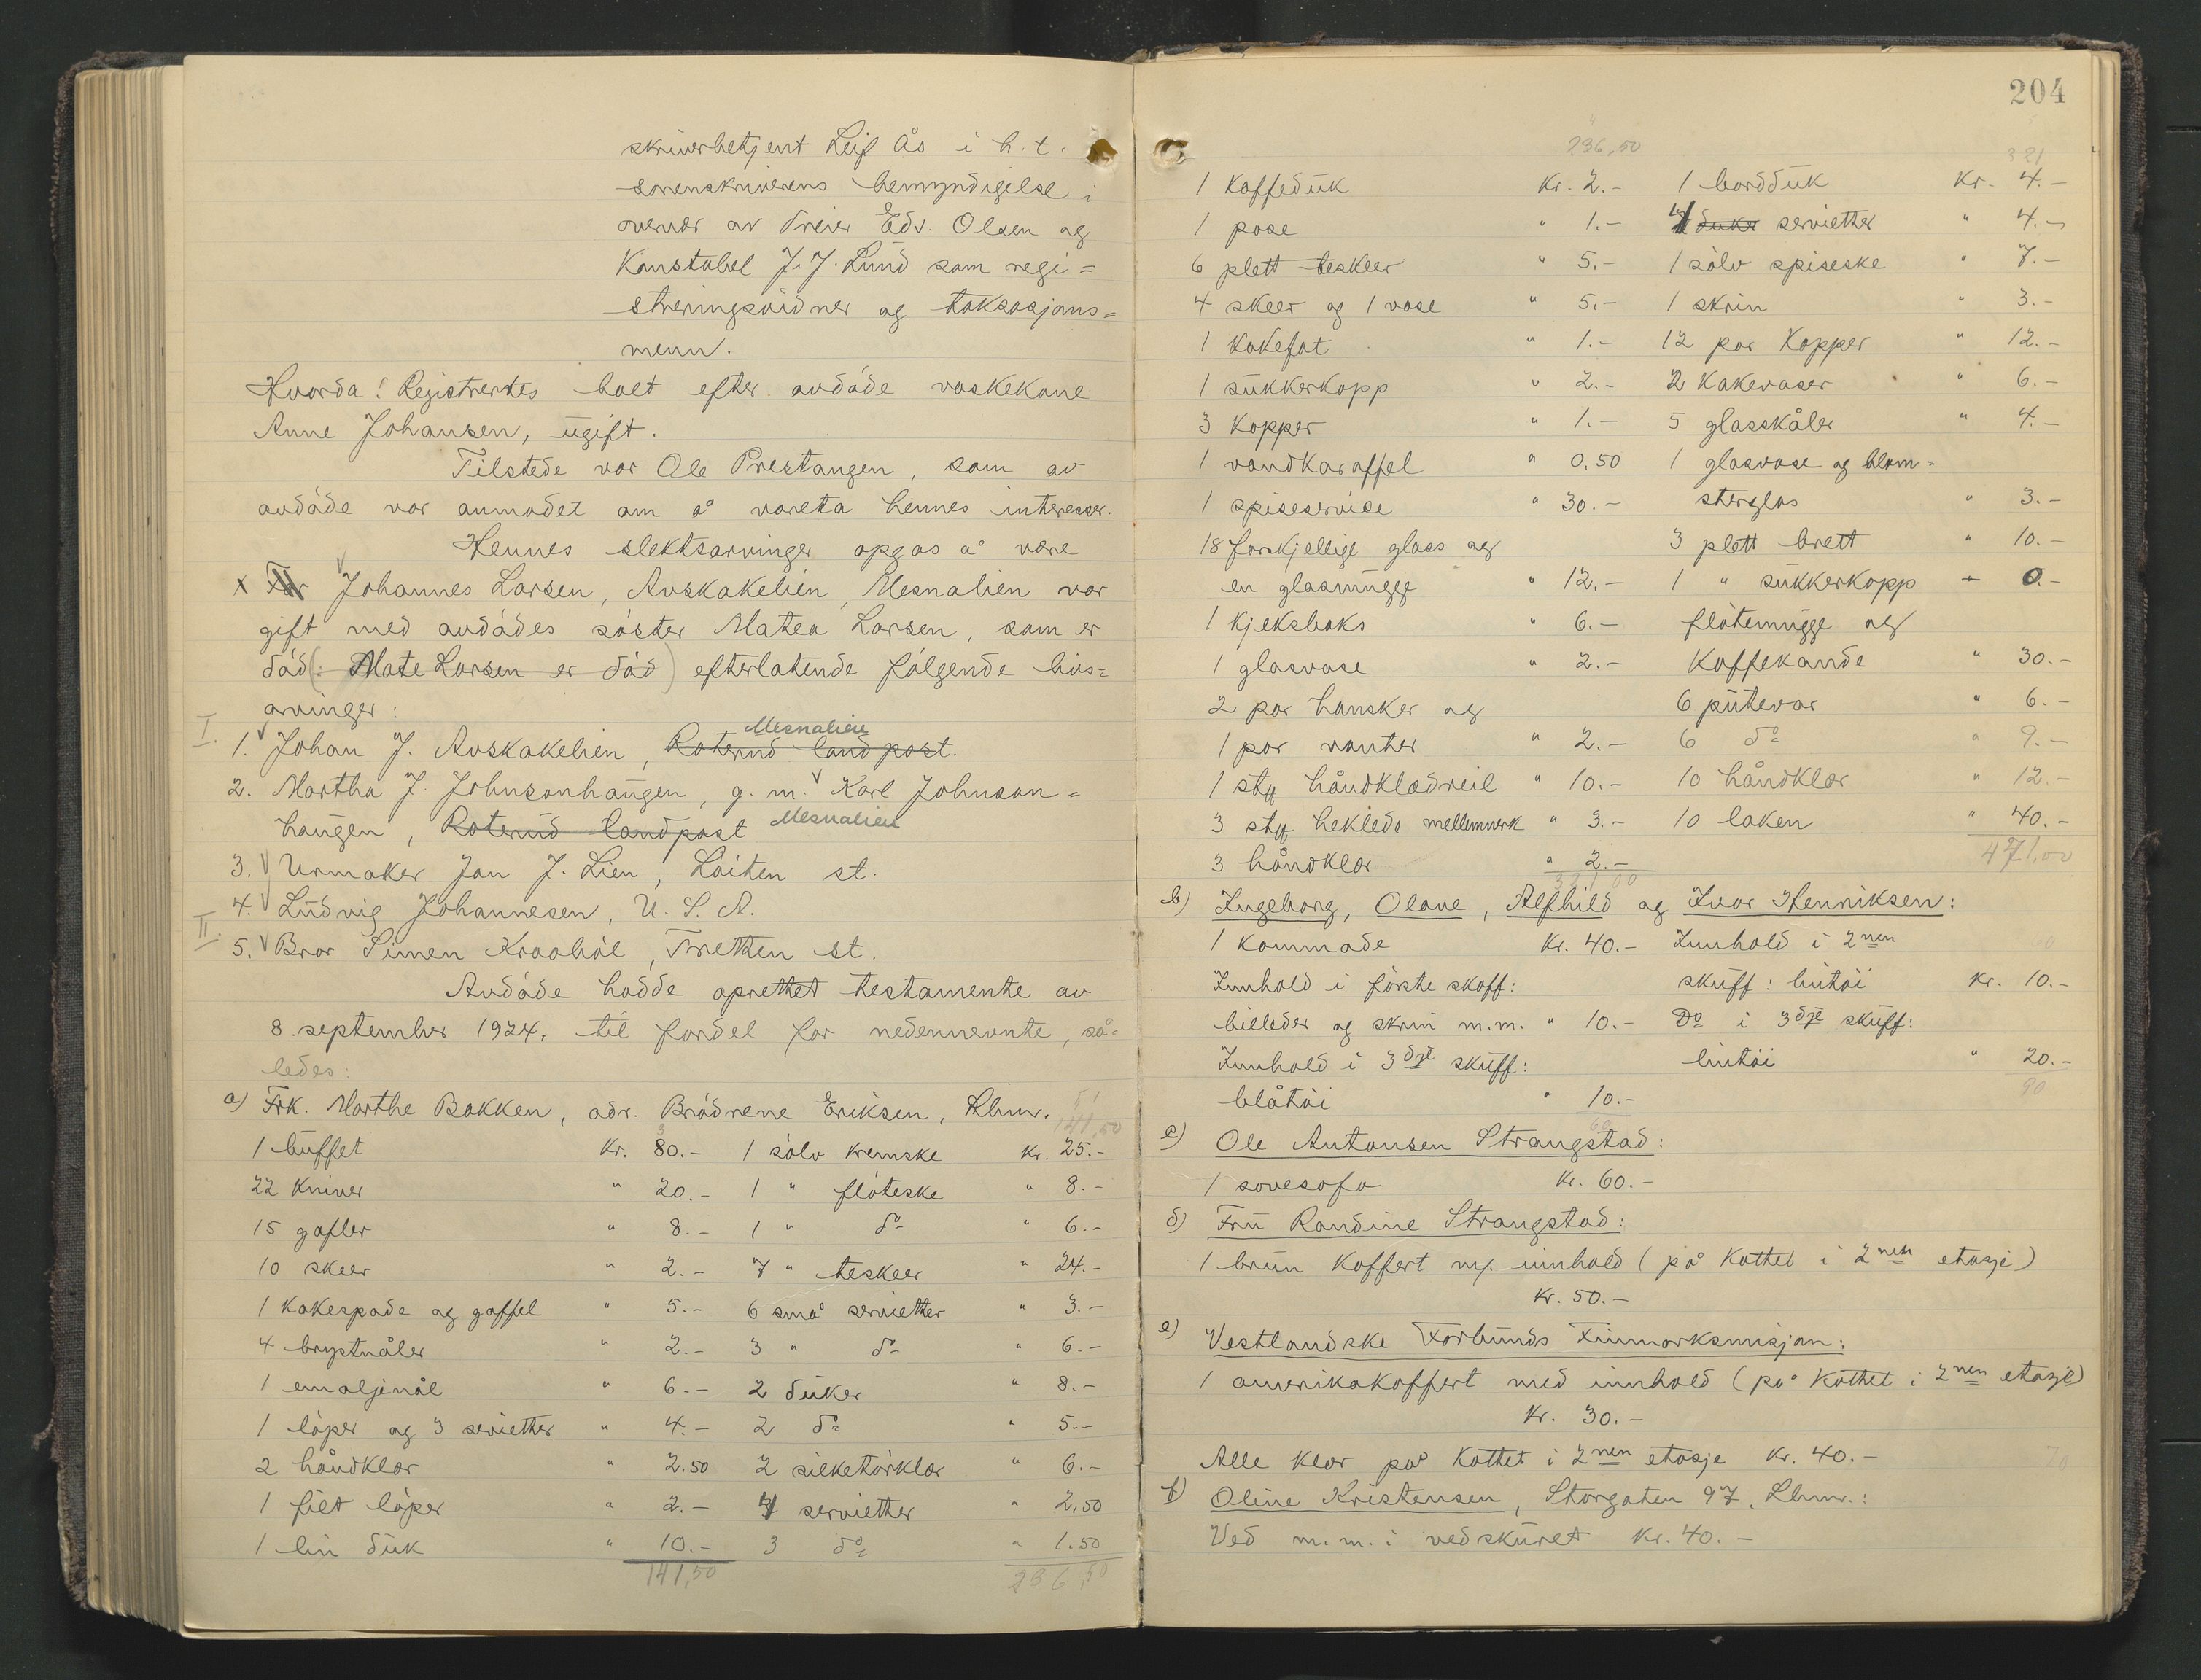 skriverbetjent Leif Ås i h.t.
sorenskriverens bemyndigelse i
nervær av dreier Edv. Olsen og
Konstabel J. J. Lund som regi=
streringsvidner og taksasjons=
menn.
Hvorda: Registrertes boet efter avdöde vaskekone
Anne Johansen, ugift.
Tilstede var Ole Prestangen, som av
avdöde var anmodet om å vareta hennes interesser.
Hennes slektsarvinger opgas å være
x Johannes Larsen, Avskakelien, Mesnalien var
gift med avdödes söster Matea Larsen, som er
död (: Mate Larsen er död) efterlatende fölgende livs=
arvinger:
Mesnalien
I. 1. Johan J. Avskakelien, Roterud landpost.
2. Martha J. Johnsonhaugen, g. m. Karl Johnson=
haugen, Roterud landpost Mesnalien
3. Urmaker Jon J. Lien, Löiten st.
4. Ludvig Johannesen, U. S. A.
II. 5. Bror Simen Kraaböl, Tretten st.
Avdöde hadde oprettet testamente av
8. september 1924, til fordel for nedennevnte, så=
ledes:
a) Frk. Marthe Bakken, adr. Brödrene Eriksen, Lhmr. 51
141,50
1 buffet kr. 80.- 1 sölv kremske kr. 25.-
22 kniver " 20.- 1 " flöteske " 8.-
15 gafler " 8.- 1 " do " 6.-
10 skeer " 2.- 7 " teskeer " 24.-
1 kakespade og gaffel " 5.- 6 små servietter " 3.-
4 brystnåler " 2.- 3 " do " 6.-
1 emaljenål " 6.- 2 duker " 8.-
1 löper og 3 servietter " 4.- 2 do " 5.-
2 håndklær " 2.50 2 silketörklær " 6.-
1 filet löper " 2.- 4 servietter " 2,50
1 lin duk " 10.- 3 do " 1.50
141,50 236,50
204
236,50 321
1 kaffeduk kr. 2.- 1 bordduk kr. 4.-
1 pose " 1.- 4 duke servietter " 4.-
6 plett teskeer " 5.- 1 sölv spiseske " 7.-
4 skeer og 1 vase " 5.- 1 skrin " 3.-
1 kakefat " 1.- 12 par kopper " 12.-
1 sukkerkopp " 2.- 2 kakevaser " 6.-
3 kopper " 1.- 5 glasskåler " 4.-
1 vandkaraffel " 0,50 1 glasvase og blom=
1 spiseservice " 30.- sterglas " 3.-
18 forskjellige glass og 3 plett brett " 10.-
en glasmugge " 12.- 1 " sukkerkopp - 0.-
1 kjeksboks " 6.- flötemugge og
1 glasvase " 2.- kaffekande " 30.-
2 par hansker og 6 putevar " 6.-
1 par vanter " 2.- 6 do " 9.-
1 stk håndklædreil " 10.- 10 håndklær " 12.-
3 stk heklede mellemverk " 3.- 10 laken " 40.-
3 håndklær " 2.- 471,00
321,00
b) Ingeborg, Olave, Alfhild og Ivar Henriksen:
1 kommode kr. 40.- Innhold i 2nen
Innhold i förste skoff: skuff: lintöi kr. 10.-
billeder og skrin m.m. " 10.- Do i 3dje skuff:
Innhold i 3dje skuff: lintöi " 20.-
blåtöi " 10.- 90
60
c) Ole Antonsen Strangstad:
1 sovesofa kr. 60.-
d) Fru Randine Strangstad:
1 brun koffert m/. innhold (på kottet i 2nen etasje)
kr. 50.-
e) Vestlandske Forbunds Finmarksmisjon:
1 amerikakoffert med innhold (på kottet i 2nen etasje)
kr. 30.-
Alle klær på kottet i 2nen etasje kr. 40.- 70
f) Oline Kristensen, Storgaten 97, Lhmr.:
Ved m.m. i vedskuret kr. 40.-